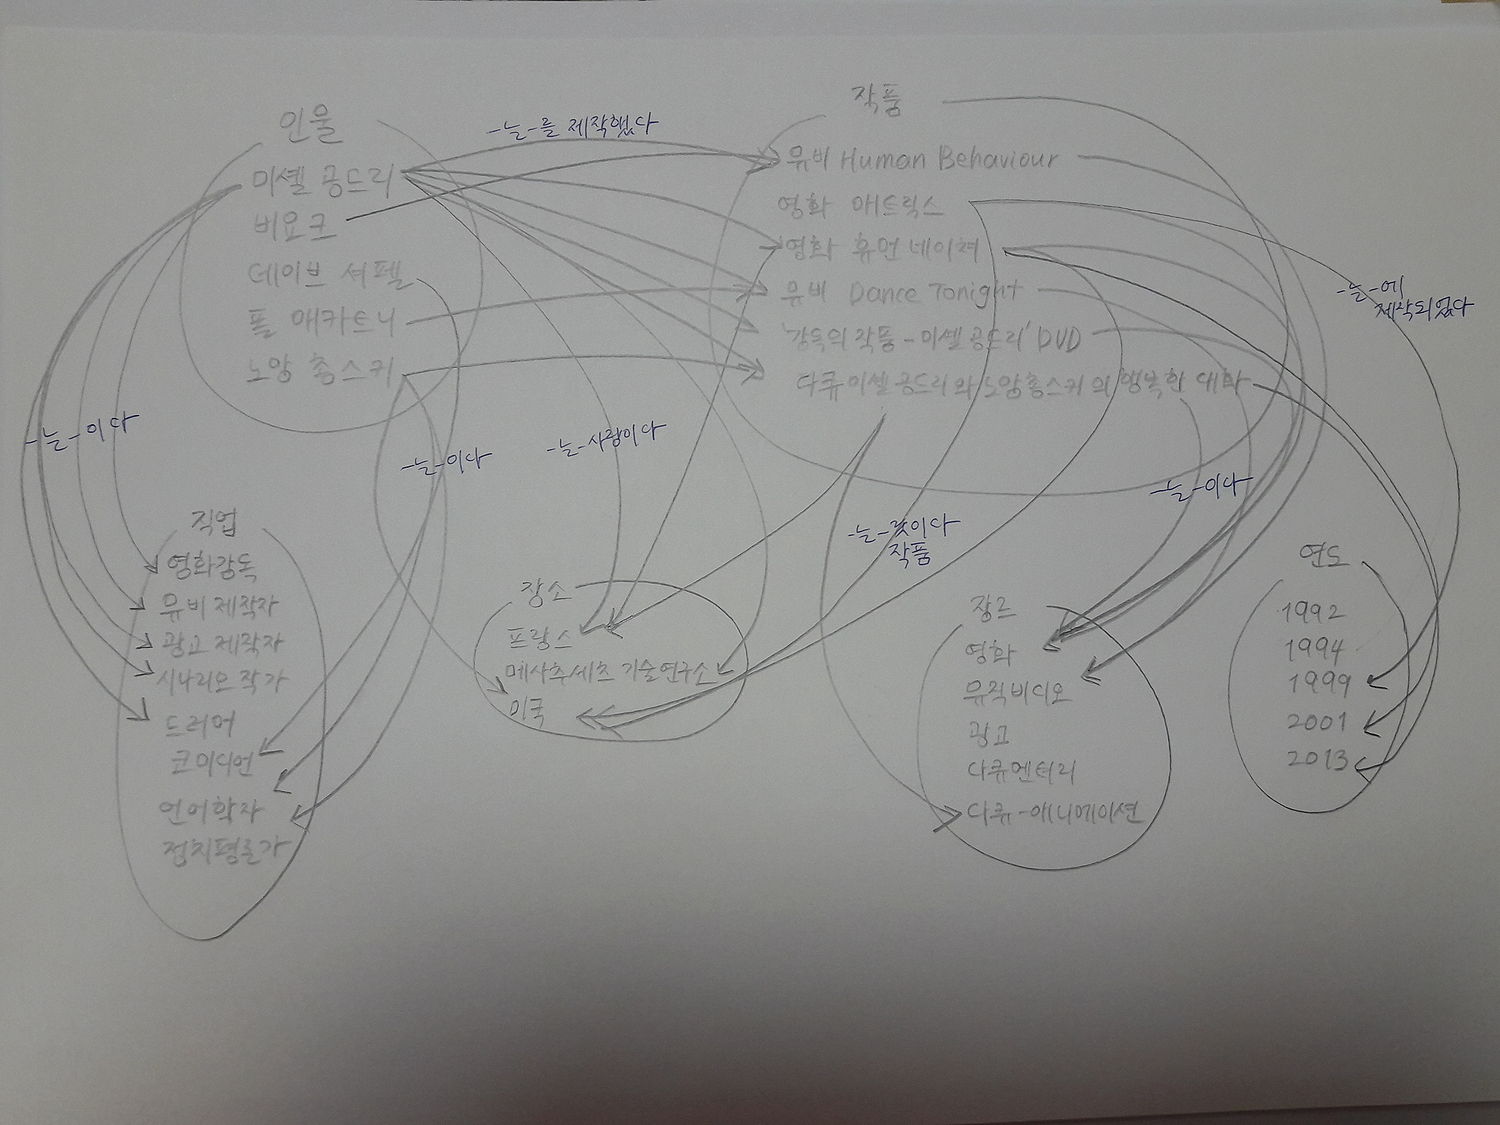 인물
미셸 공드리
비요크
데이브 셔펠
폴 매카트니
노암 촘스키
-는-를 제작했다
작품
뮤비 Human Behaviour
영화 매트릭스
영화 휴먼 네이쳐
뮤비 Dance Tonight
'감독의 작품-미셸 공드리' DVD
다큐 미셸 공드리와 노암 촘스키의 행복한 대화
-는-에
제작되었다
-는-이다
-는-이다
-는-사람이다
-는-이다
작품
직업
영화감독
뮤비 제작자
광고 제작자
시나리오 작가
드러머
코미디언
언어학자
정치평론가
장소
프랑스
메사추세츠 기술연구소
미국
장르
영화
뮤직비디오
광고
다큐멘터리
다큐-애니메이션
연도
1992
1994
1999
2001
2013